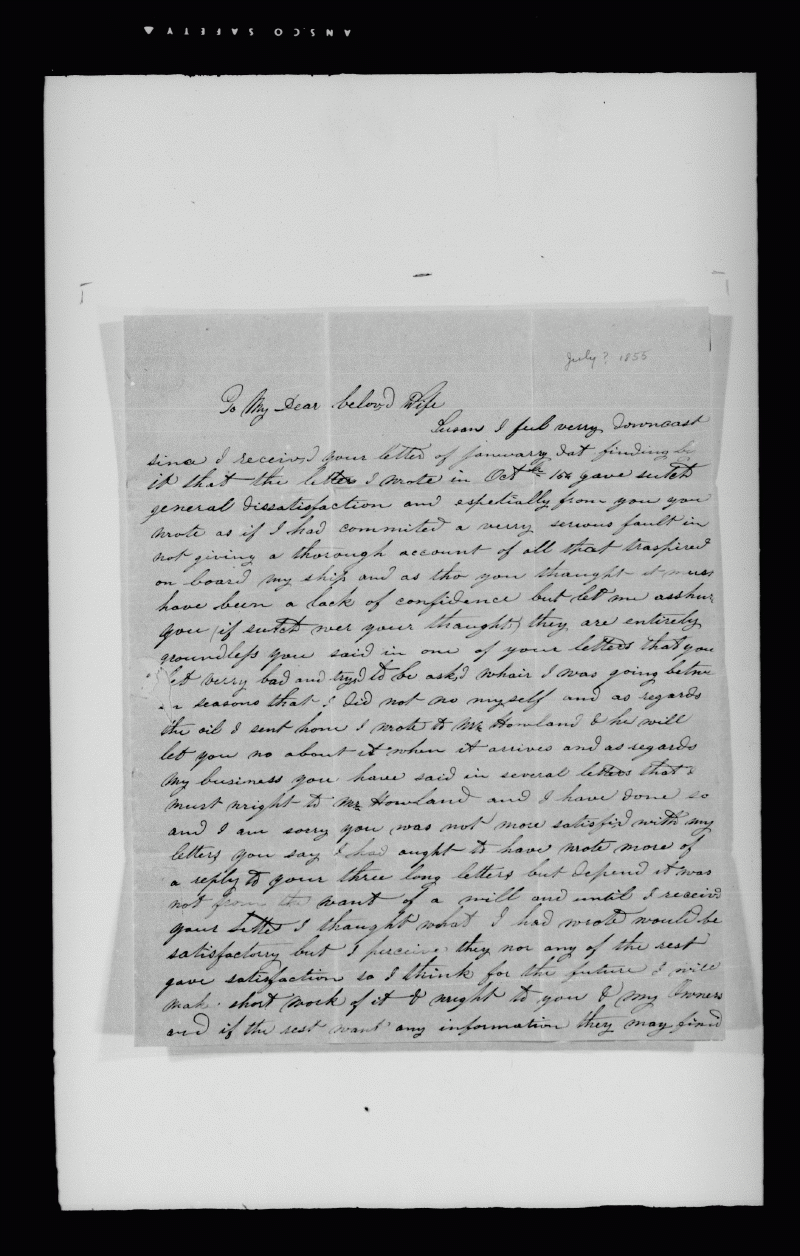 ANSCO SAFETY
July? 1855
To My Dear belovd Wife
Susan I feel verry downcast
since I receivd your letter of janurary dat finding by
it that the letter I wrote in Oct gave sutch
general dissatisfaction and espetially from you you
wrote as if I had commited a verry serious fault in
not giving a thorough account of all that traspired
on board my ship and as tho you thaught it must
have been a lack of confidence but let me asshure
you (if sutch wer your thaughts) they are entirely
groundless you said in one of your letters that you
felt verry bad and tryd to be askd whair I was going betwe
en seasons that I did not no myself and as regards
the oil I sent home I wrote to Mr Howland & he will
let you no about it when it arrives and as regards
my business you have said in several letters that I
must wright to Mr Howland and I have done so
and I am sorry you was not more satisfid with my
letters you say I had aught to have wrote more of
a reply to your three long letters but depend it was
not from the want of a will and until I receivd
your letter I thaught what I had wrote would be
satisfactorry but I perceive they nor any of the rest
gave satisfaction so I think for the future I will
make short work of it & wright to you & my Owners
and if the rest want any information they may find